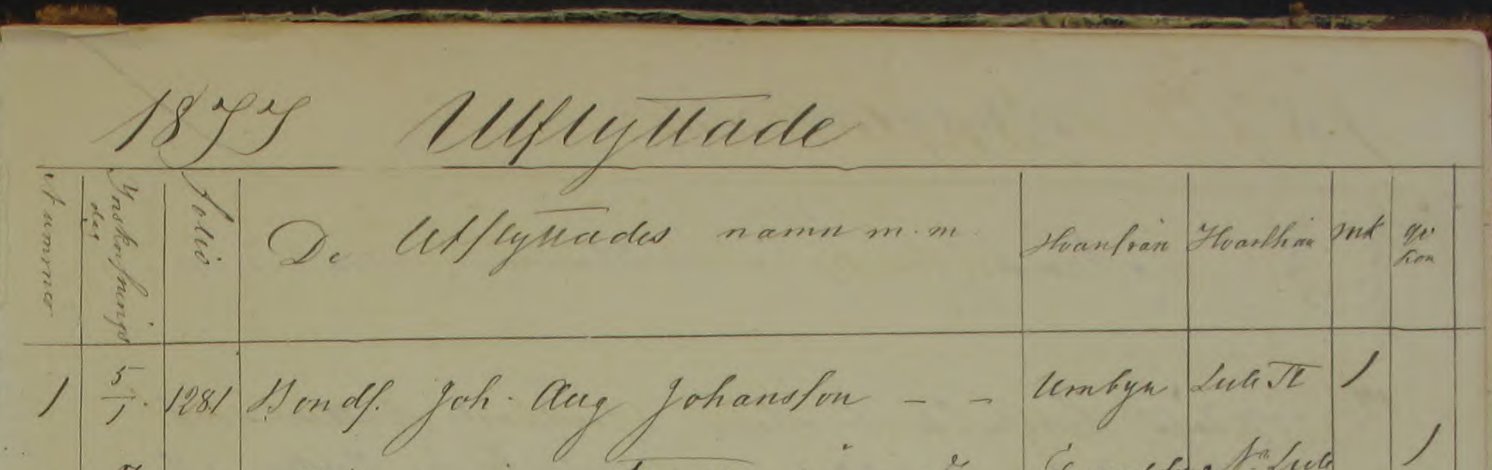 1877 Utflyttade
Nummer Inskrifnings dag folio De Utflyttades namn m. m. Hvarifrån Hvarthän mk qv kön
1 5/1 1281 Bondf. Joh. Aug Johansson - - Umbyn Lule St 1
1